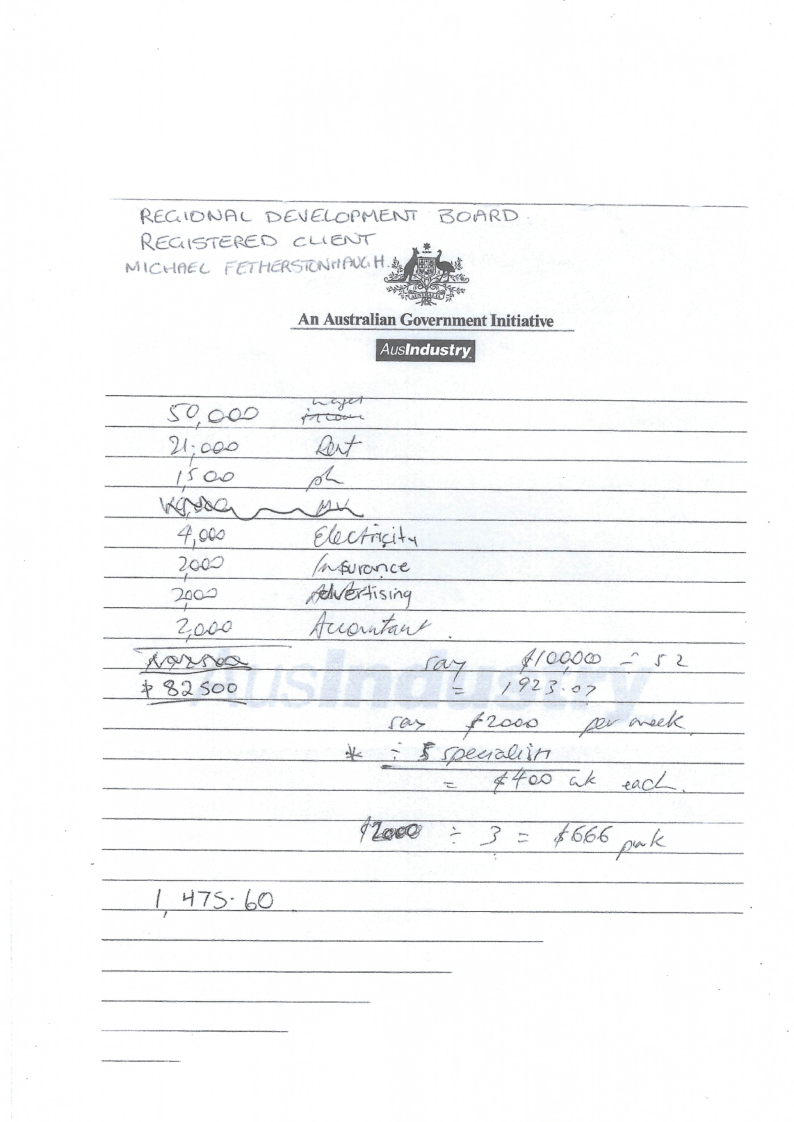 REGIONAL DEVELOPMENT BOARD
REGISTERED CLIENT
MICHAEL FETHERSTONHAUGH.
AUSTRALIA
An Australian Government Initiative
AusIndustry
50,000 wages income
21,000 Rent
1,500 ph
4,000 Electricity
2000 Insurance
2000 Advertising
2,000 Accountant.
say $100,000 ÷ 52
$82500 = 1923.07
AusIndustry
say $2000 per week
* ÷ 5 specialist
= $400 wk each.
$2000 ÷ 3 = $666 p wk
1,475.60